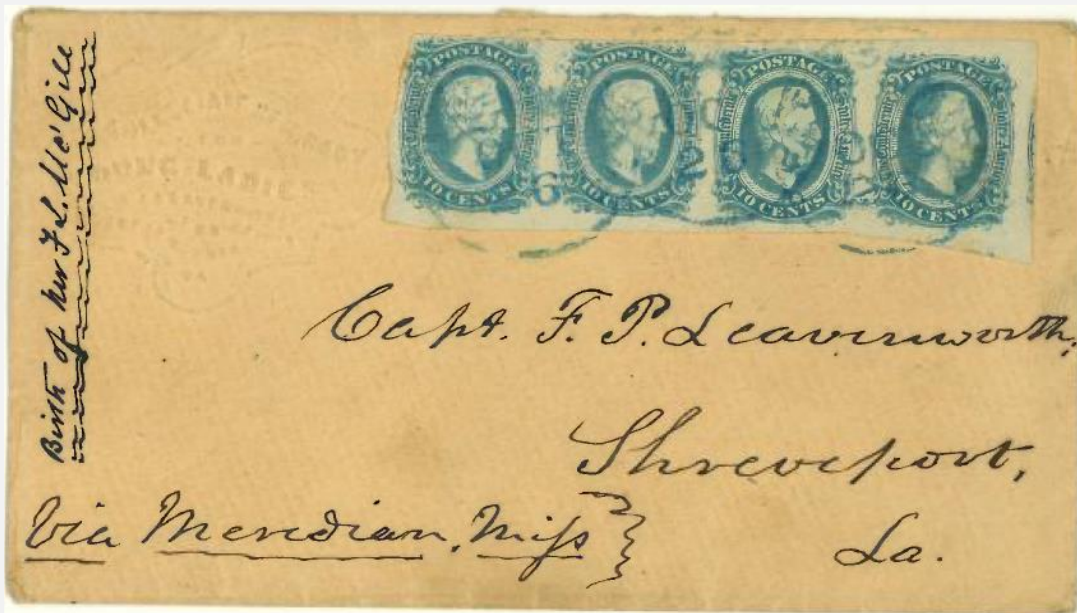 Birth of her F L. McGill
YOUNG LADIES
POSTAGE
10 CENTS
POSTAGE
10 CENTS
POSTAGE
10 CENTS
POSTAGE
10 CENTS
6
Capt. F. P. Leavenworth,
Shreveport,
La.
Via Meredian, Miss